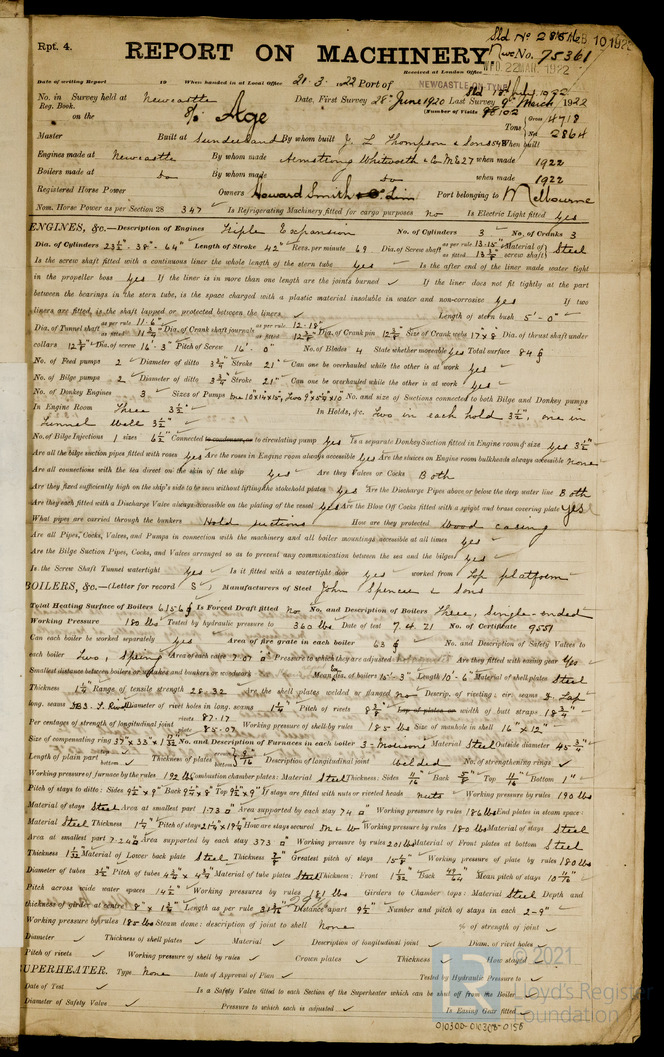 Rpt. 4.
Sld No 2816
FEB 10 192
REPORT ON MACHINERY
Nwc No. 75361
WED. 22 MAR. 1922
Received at London Office
Date of writing Report 19 When handed in at Local Office 21.3.22 Port of NEWCASTLE-ON-TYNE
No. in Survey held at Newcastle Date, First Survey 28th June 1920 Last Survey 9th March, 1922
Reg. Book. (Number of Visits
on the S/S Age Tons Gross 4718 Net 2864
Master Built at Sunderland By whom built J. L. Thompson & Sons When built
Engines made at Newcastle By whom made Armstrong Whitworth & Co when made 1922
Boilers made at do By whom made do when made 1922
Registered Horse Power Owners Howard Smith Port belonging to Melbourne
Nom. Horse Power as per Section 28 347 Is Refrigerating Machinery fitted for cargo purposes No Is Electric Light fitted Yes
ENGINES, &c.—Description of Engines Triple Expansion No. of Cylinders 3 No. of Cranks 3
Dia. of Cylinders 23½"- 38"- 64" Length of Stroke 42" Revs. per minute 69 Dia. of Screw shaft as per rule 13.15" as fitted Material of screw shaft Steel
Is the screw shaft fitted with a continuous liner the whole length of the stern tube Yes Is the after end of the liner made water tight
in the propeller boss yes If the liner is in more than one length are the joints burned ✓ If the liner does not fit tightly at the part
between the bearings in the stern tube, is the space charged with a plastic material insoluble in water and non-corrosive yes If two
liners are fitted, is the shaft lapped or protected between the liners ✓ Length of stern bush 5'-0"
Dia. of Tunnel shaft as per rule 11.6" as fitted Dia. of Crank shaft journals as per rule 12.18" as fitted Dia. of Crank pin Size of Crank webs 17"x8" Dia. of thrust shaft under
collars Dia. of screw 16'-3" Pitch of Screw 16'-0" No. of Blades 4 State whether moveable yes Total surface 84
No. of Feed pumps 2 Diameter of ditto 3¾" Stroke 21" Can one be overhauled while the other is at work yes
No. of Bilge pumps 2 Diameter of ditto 3¾" Stroke 21" Can one be overhauled while the other is at work yes
No. of Donkey Engines 3 Sizes of Pumps No. and size of Suctions connected to both Bilge and Donkey pumps
In Engine Room Three 3½" In Holds, &c. Two in each hold 3½", one in
Tunnel Well 3½"
No. of Bilge Injections 1 sizes 6½" Connected to condenser, or to circulating pump yes Is a separate Donkey Suction fitted in Engine room & size yes 3½"
Are all the bilge suction pipes fitted with roses yes Are the roses in Engine room always accessible yes Are the sluices on Engine room bulkheads always accessible none
Are all connections with the sea direct on the skin of the ship yes Are they Valves or Cocks Both
Are they fixed sufficiently high on the ship's side to be seen without lifting the stokehold plates yes Are the Discharge Pipes above or below the deep water line Both
Are they each fitted with a Discharge Valve always accessible on the plating of the vessel yes Are the Blow Off Cocks fitted with a spigot and brass covering plate yes
What pipes are carried through the bunkers Hold suctions How are they protected Wood casing
Are all Pipes, Cocks, Valves, and Pumps in connection with the machinery and all boiler mountings accessible at all times yes
Are the Bilge Suction Pipes, Cocks, and Valves arranged so as to prevent any communication between the sea and the bilges yes
Is the Screw Shaft Tunnel watertight yes Is it fitted with a watertight door yes worked from Top platform
BOILERS, &c.—(Letter for record S) Manufacturers of Steel John Spencer & Sons
Total Heating Surface of Boilers 6156 Is Forced Draft fitted no No. and Description of Boilers Three, Single-ended
Working Pressure 180 lbs Tested by hydraulic pressure to 360 lbs Date of test 7.4.21 No. of Certificate 9551
Can each boiler be worked separately yes Area of fire grate in each boiler 63 No. and Description of Safety Valves to
each boiler Two, Spring Area of each valve 7.07 Pressure to which they are adjusted Are they fitted with easing gear yes
Smallest distance between boilers or uptakes and bunkers or woodwork Mean dia. of boilers 15'-3" Length 10'-6" Material of shell plates Steel
Thickness Range of tensile strength 28-32 Are the shell plates welded or flanged no Descrip. of riveting: cir. seams D. Lap
long. seams Diameter of rivet holes in long. seams Pitch of rivets Lap of plates or width of butt straps
Per centages of strength of longitudinal joint rivets 87.17 plate 85.07 Working pressure of shell by rules 185 lbs Size of manhole in shell 16"x12"
Size of compensating ring No. and Description of Furnaces in each boiler 3 - Morisons Material Steel Outside diameter 45¾"
Length of plain part top bottom Thickness of plates crown bottom Description of longitudinal joint Welded No. of strengthening rings ✓
Working pressure of furnace by the rules 192 lbs Combustion chamber plates: Material Steel Thickness: Sides Back Top Bottom 1"
Pitch of stays to ditto: Sides Back Top If stays are fitted with nuts or riveted heads nuts Working pressure by rules 190 lbs
Material of stays Steel Area at smallest part 1.73 Area supported by each stay 74 Working pressure by rules 186 lbs End plates in steam space:
Material Steel Thickness Pitch of stays How are stays secured Working pressure by rules 180 lbs Material of stays Steel
Area at smallest part 7.24 Area supported by each stay 373 Working pressure by rules 201 lbs Material of Front plates at bottom Steel
Thickness Material of Lower back plate Steel Thickness Greatest pitch of stays Working pressure of plate by rules 180 lbs
Diameter of tubes 3½" Pitch of tubes Material of tube plates Steel Thickness: Front Back Mean pitch of stays
Pitch across wide water spaces 14½" Working pressures by rules 181 lbs Girders to Chamber tops: Material Steel Depth and
thickness of girder at centre Length as per rule Distance apart 9½" Number and pitch of stays in each 2-9"
Working pressure by rules 185 lbs Steam dome: description of joint to shell None % of strength of joint ✓
Diameter ✓ Thickness of shell plates ✓ Material ✓ Description of longitudinal joint ✓ Diam. of rivet holes ✓
Pitch of rivets ✓ Working pressure of shell by rules ✓ Crown plates ✓ Thickness ✓ How stayed ✓
SUPERHEATER. Type None Date of Approval of Plan ✓ Tested by Hydraulic Pressure to ✓
Date of Test ✓ Is a Safety Valve fitted to each Section of the Superheater which can be shut off from the Boiler ✓
Diameter of Safety Valve ✓ Pressure to which each is adjusted ✓ Is Easing Gear fitted ✓
LR
© 2021
Lloyd's Register
Foundation
010300-010308-0156